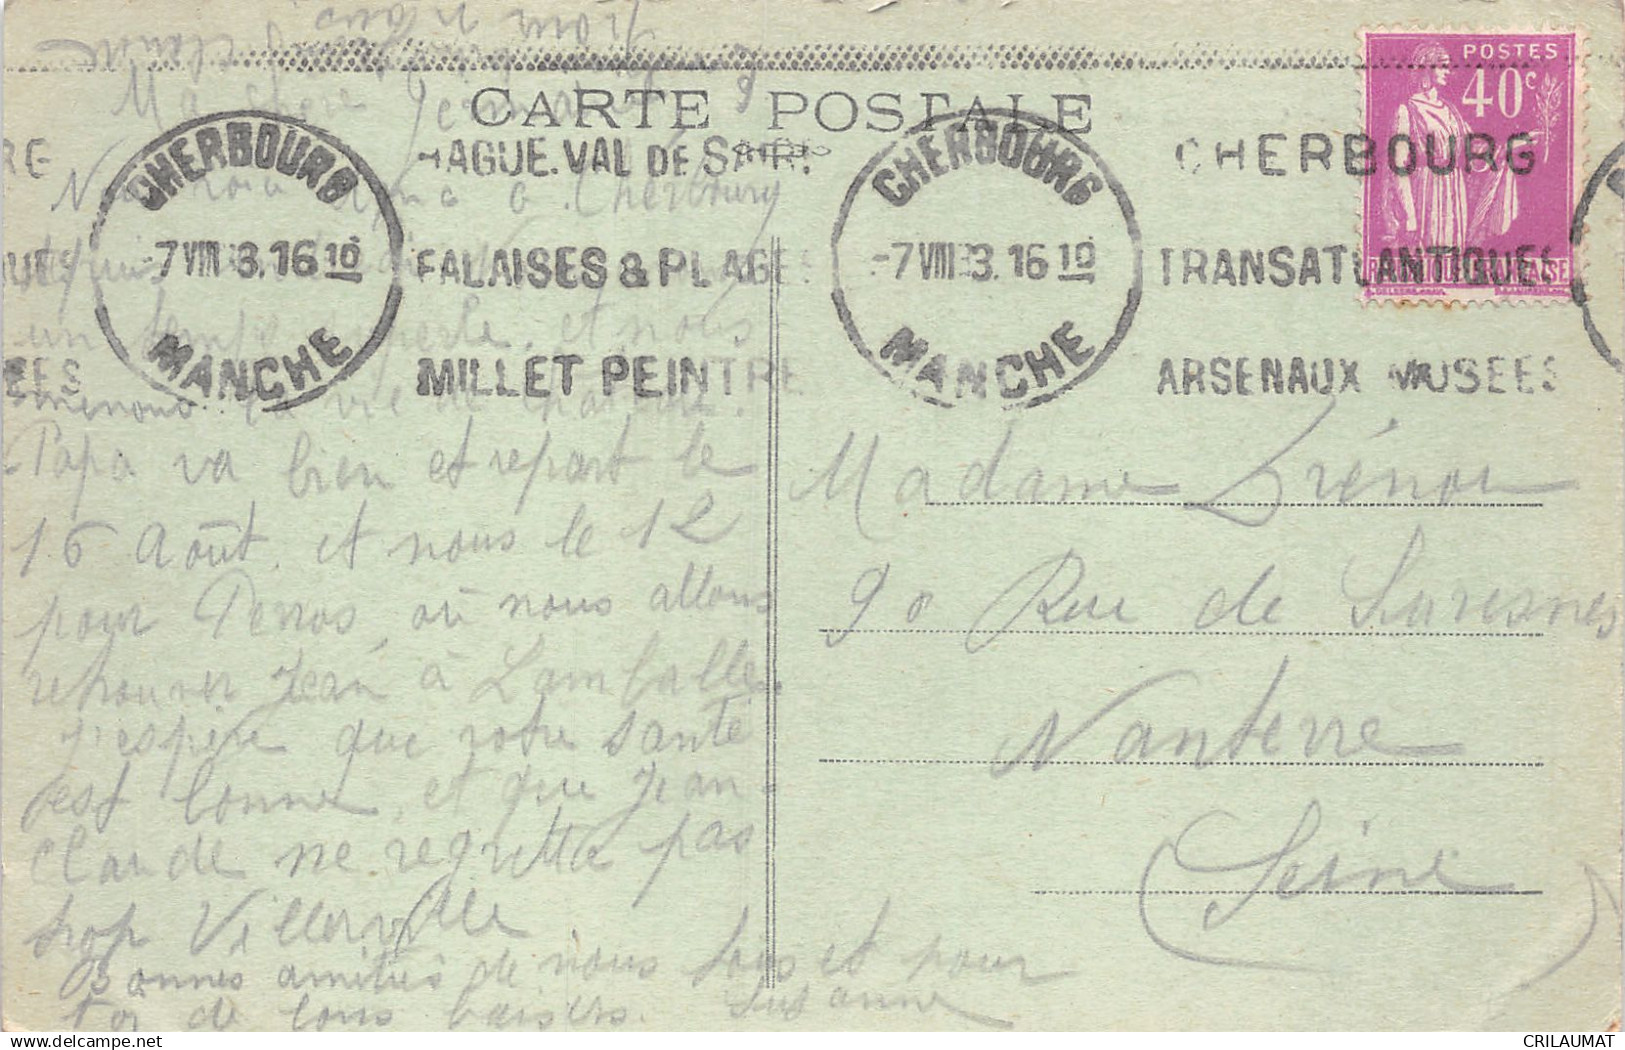 CARTE POSTALE
POSTES
40c
CHERBOURG
-7 VIII 33. 16 10
MANCHE
HAGUE.VAL DE SAIRE
FALAISES & PLAGES
MILLET PEINTRE
CHERBOURG
-7 VIII 33. 16 10
MANCHE
CHERBOURG
TRANSATLANTIQUES
ARSENAUX MUSEES
Ma chère
à Cherbourg
depuis
un temps superbe, et nous
menons la vie de
Papa va bien et repart le
16 Août. et nous le 12
pour Perros, où nous allons
retrouver Jean à Lamballe.
J'espère que votre santé
est bonne, et que Jean-
Claude ne regrette pas
trop Villerville
Bonnes amitiés de nous tous et pour
toi de bons baisers. Suzanne
Madame
90 Rue de Suresnes
Nanterre
Seine
CRILAUMAT